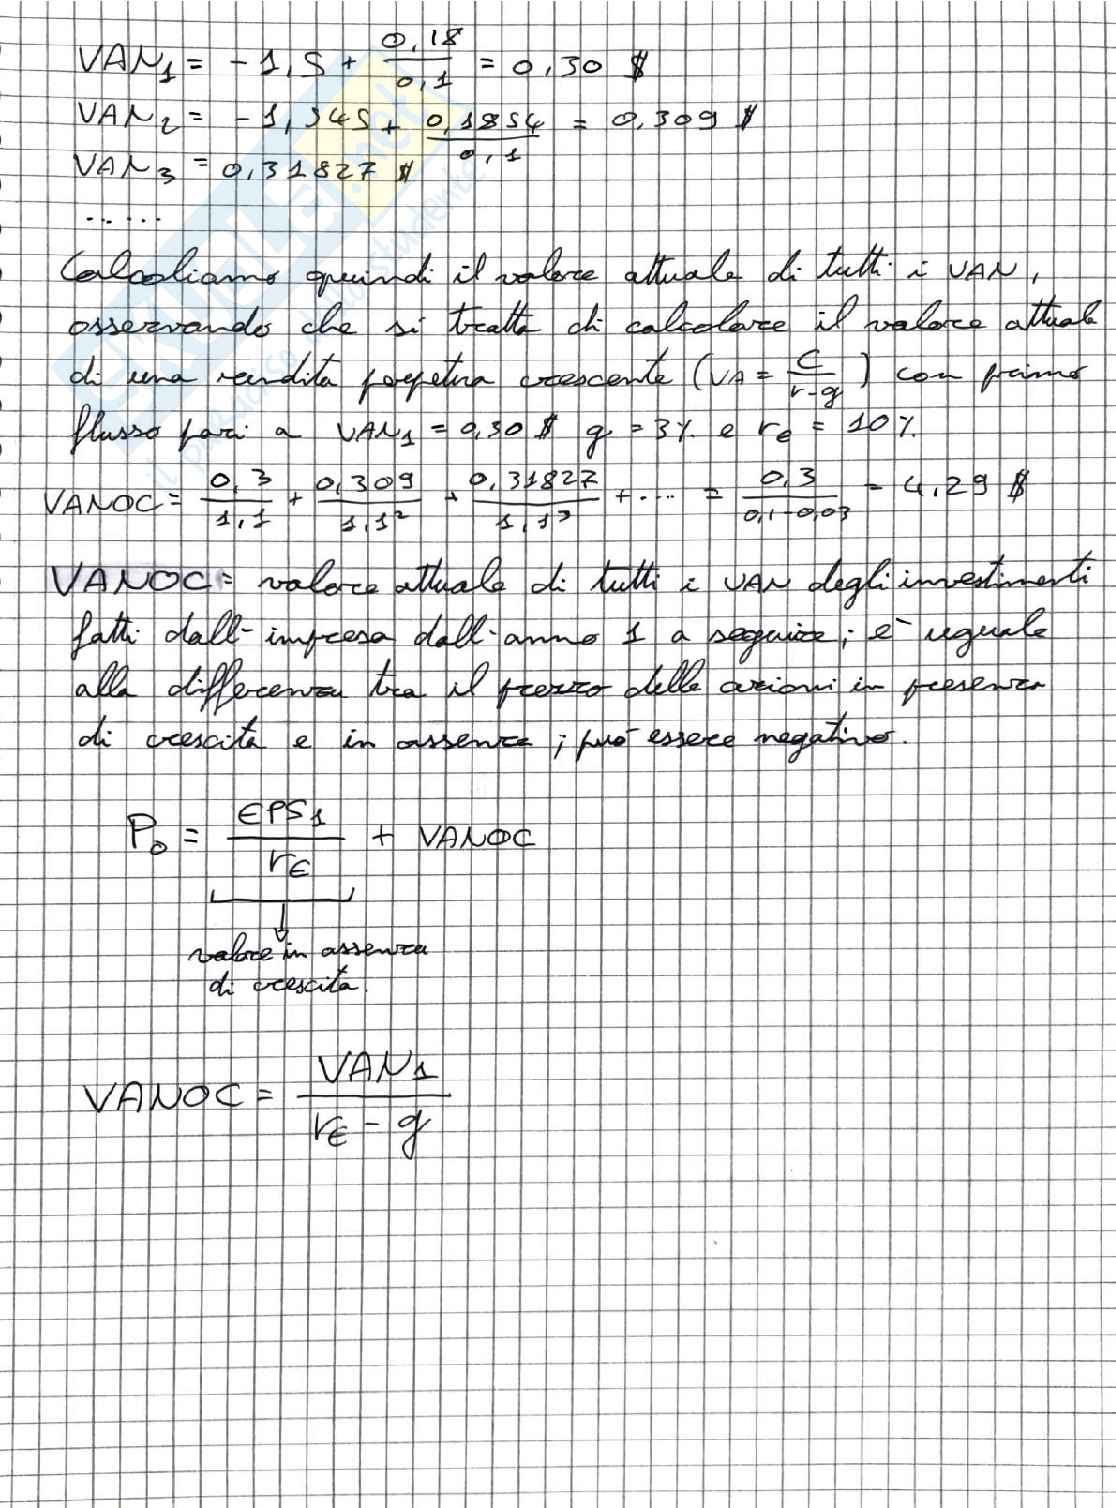 VAN1 = -1,5 + 0,18/0,1 = 0,30 $
VAN2 = -1,545 + 0,1854/0,1 = 0,309 $
VAN3 = 0,31827 $
......
Calcoliamo quindi il valore attuale di tutti i VAN,
osservando che si tratta di calcolare il valore attuale
di una rendita perpetua crescente (VA = C/r-g) con primo
flusso pari a VAN1 = 0,30 $ g = 3% e re = 10%.
VANOC = 0,3/1,1 + 0,309/1,1² + 0,31827/1,1³ + .... = 0,3/0,1-0,03 = 4,29 $
VANOC = valore attuale di tutti i VAN degli investimenti
fatti dall'impresa dall'anno 1 a seguire; è uguale
alla differenza tra il prezzo delle azioni in presenza
di crescita e in assenza; può essere negativo.
P0 = EPS1/rE + VANOC
valore in assenza
di crescita
VANOC = VAN1/rE - g